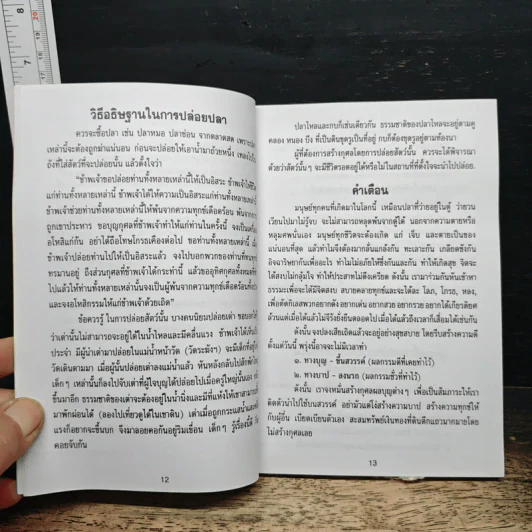 วิธีอธิษฐานในการปล่อยปลา
ควรจะซื้อปลา เช่น ปลาหมอ ปลาช่อน จากตลาดสด เพราะปลา
เหล่านี้จะต้องถูกฆ่าแน่นอน ก่อนจะปล่อยให้เอาน้ำมาถ้วยหนึ่ง
ถังที่ใส่สัตว์ที่จะปล่อยนั้น แล้วตั้งใจว่า
"ข้าพเจ้าขอปล่อยท่านทั้งหลายเหล่านี้ให้เป็นอิสระ ข้าพเจ้าให้ชีวิต
แก่ท่านทั้งหลายเหล่านี้ ข้าพเจ้าได้ให้ความเป็นอิสระแก่ท่านทั้งหลายเหล่านี้
ข้าพเจ้าช่วยท่านทั้งหลายเหล่านี้ให้พ้นจากความทุกข์เดือดร้อน พ้นจากการ
ถูกเขาประหาร ขอบุญกุศลที่ข้าพเจ้าทำให้แก่ท่านในครั้งนี้ จงเป็นเครื่อง
อโหสิแก่กัน อย่าได้ถือโทษโกรธเคืองต่อไป ขอท่านทั้งหลายเหล่านี้ เมื่อ
ข้าพเจ้าปล่อยท่านไปให้เป็นอิสระแล้ว จงไปบอกพวกของท่านที่ทนทุกข์
ทรมานอยู่ ถึงส่วนกุศลที่ข้าพเจ้าได้กระทำนี้ แล้วขออุทิศกุศลทั้งหมดที่
ไปแล้วให้ท่านทั้งหลายเหล่านั้นจงเป็นผู้พ้นจากความทุกข์เดือดร้อนทั้ง
และจงอโหสิกรรมให้แก่ข้าพเจ้าด้วยเถิด"
ข้อควรรู้ ในการปล่อยสัตว์นั้น บางคนนิยมปล่อยเต่า ขอบอกให้
ว่าเต่านั้นไม่สามารถจะอยู่ได้ในน้ำไหลและมีคลื่นแรง ข้าพเจ้าได้เห็น
ประจำ มีผู้นำเต่ามาปล่อยในแม่น้ำหน้าวัด (วัดระฆังฯ) จะมีเด็กที่อยู่
วัดเดินตามมา เมื่อผู้นั้นปล่อยเต่าลงแม่น้ำแล้ว หันหลังกลับไปสักพัก
เด็กๆ เหล่านั้นก็ลงไปจับเต่าที่ผู้ใจบุญได้ปล่อยไปเมื่อครู่ใหญ่นั้นเอง
ขึ้นมาอีก ธรรมชาติของเต่าจะต้องอยู่ในน้ำนิ่งและมีที่แห้งให้เขาสามารถ
มาพักผ่อนได้ (ลองไปเที่ยวดูได้ในเขาดิน) เต่าเมื่อถูกกระแสน้ำและคลื่น
แรงก็อยากจะขึ้นบก จึงมาลอยคอกันอยู่ริมเขื่อน เด็กๆ รู้เรื่องนี้ดี
คอยจับกัน
12
ปลาไหลและกบก็เช่นเดียวกัน ธรรมชาติของปลาไหลจะอยู่ตามคู
คลอง หนอง บึง ที่เป็นดินขรุบเป็นที่อยู่ กบก็ต้องขุดรูอยู่ตามท้องนา
ผู้ที่ต้องการสร้างกุศลโดยการปล่อยสัตว์นั้น ควรจะได้พิจารณา
ด้วยว่าสัตว์นั้นๆ จะมีชีวิตรอดอยู่ได้หรือไม่ในสถานที่ที่ตั้งใจจะนำไปปล่อย.
คำเตือน
มนุษย์ทุกคนที่เกิดมาในโลกนี้ เหมือนปลาที่ว่ายอยู่ในตู้ ว่ายวน
เวียนไปมาไม่รู้จบ จะไม่สามารถหลุดพ้นจากตู้ได้ นอกจากความตายหรือ
หลุมศพนั่นเอง มนุษย์ทุกชีวิตจะต้องเกิด แก่ เจ็บ และตายเป็นของ
แน่นอนที่สุด แล้วทำไมจึงต้องมากลั่นแกล้งกัน ทะเลาะกัน เกลียดชังกัน
อิจฉาริษยากันเพื่ออะไร ทำไมไม่อภัยให้ซึ่งกันและกัน ทำให้เกิดสุข จิตจะ
ได้สงบไม่กลุ้มใจ ทำให้ประสาทไม่ตึงเครียด ดังนั้น เรามาร่วมกันหันเข้าหา
ธรรมะเพื่อจะได้มีจิตสงบ สบายคลายทุกข์และจะได้ละ โลภ, โกรธ, หลง,
เพื่อตัดกิเลสพวกอยากดัง อยากเด่น อยากสวย อยากรวย อยากได้เกียรติยศ
ล้วนแต่เมื่อได้แล้วไม่จีรังยั่งยืนตลอดไป เมื่อได้แล้วถึงเวลาก็เสื่อมได้เช่นกัน
ดังนั้น จงปลงเสียเถิดแล้วจะอยู่อย่างสุขสบาย โดยรีบสร้างความดี
ตั้งแต่วันนี้ พรุ่งนี้อาจจะไม่มีเวลาทำ
๑. ทางบุญ - ขึ้นสวรรค์ (ผลกรรมดีที่เคยทำไว้)
๒. ทางบาป - ลงนรก (ผลกรรมชั่วที่ทำไว้)
ดังนั้น เราจงหมั่นสร้างกุศลผลบุญต่างๆ เพื่อเป็นสัมภาระให้เรา
ติดตัวนำไปใช้บนสวรรค์ อย่ามัวแต่ใฝ่สร้างความบาป สร้างความทุกข์ให้
กับผู้อื่น เบียดเบียนตัวเอง สะสมทรัพย์เงินทองที่ดินตึกแถวมากมายโดย
ไม่สร้างกุศลเลย
13